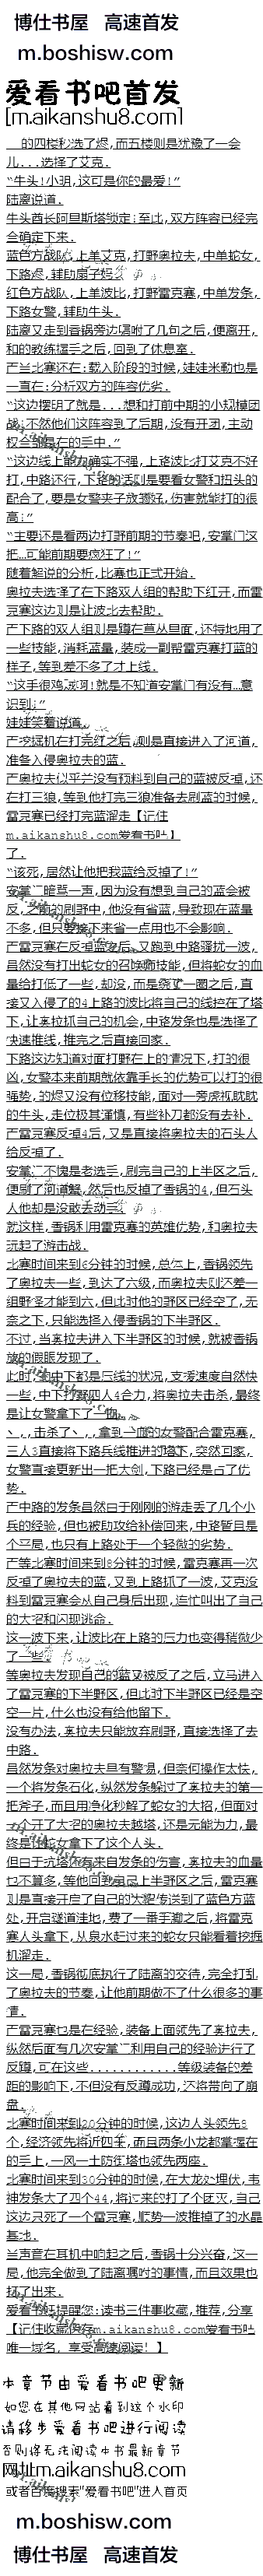 博仕书屋 高速首发
m.boshisw.com
爱看书吧首发
[m.aikanshu8.com]
的四楼秒选了烬,而五楼则是犹豫了一会
儿...选择了艾克.
“牛头!小明,这可是你的最爱!”
陆离说道.
牛头酋长阿旦斯塔锁定!至此,双方阵容已经完
全确定下来.
蓝色方战队,上单艾克,打野奥拉夫,中单蛇女,
下路烬,辅助扇子妈.
红色方战队,上单波比,打野雷克塞,中单发条,
下路女警,辅助牛头.
陆离又走到香锅旁边嘱咐了几句之后,便离开,
和的教练握手之后,回到了休息室.
比赛还在:载入阶段的时候,娃娃米勒也是
一直在:分析双方的阵容优劣.
“这边摆明了就是...想和打前中期的小规模团
战,不然他们这阵容到了后期,没有开团,主动
“这边线上能力确实不强,上路波比打艾克不好
打,中路还行,下路的话则是要看女警和扭头的
配合了,要是女警夹子放得好,伤害就能打的很
高:”
“主要还是看两边打野前期的节奏吧,安掌门这
把…可能前期要疯狂了!”
随着解说的分析,比赛也正式开始.
奥拉夫选择了在下路双人组的帮助下红开,而雷
克塞这边则是让波比去帮助.
下路的双人组则是蹲在草丛里面,还特地用了
一些技能,消耗蓝量,装成一副帮雷克塞打蓝的
样子,等到差不多了才上线.
识到:”
娃娃笑着说道.
挖掘机在打完红之后,则是直接进入了河道,
准备入侵奥拉夫的蓝.
奥拉夫似乎并没有预料到自己的蓝被反掉,还
在打三狼,等到他打完三狼准备去刷蓝的时候,
雷克塞已经打完蓝溜走【记住
m.aikanshu8.com爱看书吧】
了.
“该死,居然让他把我蓝给反掉了!”
安掌门暗骂一声,因为没有想到自己的蓝会被
反,之前的刷野中,他没有省蓝,导致现在蓝量
不多,但只要接下来省一点用也不会影响.
雷克塞在反掉蓝之后,又跑到中路骚扰一波,
虽然没有打出蛇女的召唤师技能,但将蛇女的血
量给打低了一些,却没,而是绕了一圈之后,直
接又入侵了的4上路的波比将自己的线控在了塔
下,让奥拉抓自己的机会,中路发条也是选择了
快速推线,推完之后直接回家.
下路这边知道对面打野在上的情况下,打的很
凶,女警本来前期就依靠手长的优势可以打的很
强势,的烬又没有位移技能,面对一旁虎视眈眈
的牛头,走位极其谨慎,有些补刀都没有去补.
雷克塞反掉4后,又是直接将奥拉夫的石头人
给反掉了.
安掌门不愧是老选手,刷完自己的上半区之后,
便刷了河道蟹,然后也反掉了香锅的4,但石头
人他却是没敢去动手.
就这样,香锅利用雷克塞的英雄优势,和奥拉夫
玩起了游击战.
北赛时间来到6分钟的时候,总体上,香锅领先
了奥拉夫一些,到达了六级,而奥拉夫则还差一
组野怪才能到六,但此时他的野区已经空了,无
奈之下,只能选择入侵香锅的下半野区.
不过,当奥拉夫进入下半野区的时候,就被香锅
放的假眼发现了.
此时,上中下都是压线的状况,支援速度自然快
一些,中下打野四人4合力,将奥拉夫击杀,最终
是让女警拿下了一血.
三人3直接将下路兵线推进的塔下,突然回家,
女警直接更新出一把大剑,下路已经是占了优
势.
中路的发条虽然由于刚刚的游走丢了几个小
兵的经验,但也被助攻给补偿回来,中路暂且是
个平局,也只有上路处于一个轻微的劣势.
等北赛时间来到8分钟的时候,雷克塞再一次
反掉了奥拉夫的蓝,又到上路抓了一波,艾克没
料到雷克塞会从自己身后出现,连忙叫出了自己
的大招和闪现逃命.
这一波下来,让波比在上路的压力也变得稍微少
了一些.
等奥拉夫发现自己的蓝又被反了之后,立马进入
了雷克塞的下半野区,但此时下半野区已经是空
空一片,什么也没有给他留下.
没有办法,奥拉夫只能放弃刷野,直接选择了去
中路.
虽然发条对奥拉夫早有警惕,但奈何操作太快,
一个将发条石化,纵然发条躲过了奥拉夫的第一
把斧子,而且用净化秒解了蛇女的大招,但面对
一个开了大招的奥拉夫越塔,还是无能为力,最
终是让蛇女拿下了这个人头.
但由于抗塔,还有来自发条的伤害,奥拉夫的血量
也不算多,等他回到自己上半野区之后,雷克塞
则是直接开启了自己的大招传送到了蓝色方蓝
处,开启隧道洼地,费了一番手脚之后,将雷克
塞人头拿下,从泉水赶过来的蛇女只能看着挖掘
机溜走.
这一局,香锅彻底执行了陆离的交待,完全打乱
了奥拉夫的节奏,让他前期做不了什么很多的事
情.
雷克塞也是在经验,装备上面领先了奥拉夫,
纵然后面有几次安掌门利用自己的经验进行了
反蹲,可在这些............等级装备的差
距的影响下,不但没有反蹲成功,还将带向了崩
盘.
北赛时间来到20分钟的时候,这边人头领先8
个,经济领先将近四千,而且两条小龙都掌握在
的手上,一风一土防御塔也领先两座.
北赛时间来到30分钟的时候,在大龙处埋伏,韦
神发条大了四个44,将过来的打了个团灭,自己
这边只死了一个雷克塞,顺势一波推掉了的水晶
基地.
当声音在耳机中响起之后,香锅十分兴奋,这一
局,他完全做到了陆离嘱咐的事情,而且效果也
打了出来.
爱看书吧提醒您:读书三件事收藏,推荐,分享
【记住收藏保存m.aikanshu8.com爱看书吧
唯一域名, 享受高速阅读! 】
本章节由爱看书吧更新
如您在其他网站看到这个水印
请移步爱看书吧进行阅读
否则将无法阅读本书最新章节
网址m.aikanshu8.com
或者百度搜索"爱看书吧"进入首页
m.boshisw.com
博仕书屋 高速首发